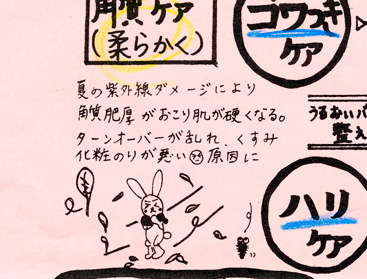 角質ケア
(柔らかく)
ゴワつキ
ケア
夏の紫外線ダメージにより
角質肥厚がおこり肌が硬くなる。
ターンオーバーが乱れ、くすみ
化粧のりが悪い原因に
うるおいバ
整え
ハリ
ケア